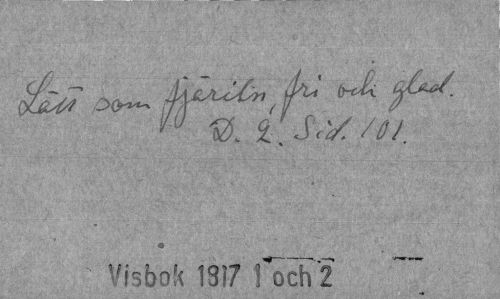 Lätt som fjäriln, fri och glad.
D. 2. Sid. 101.
Visbok 1817 1 och 2